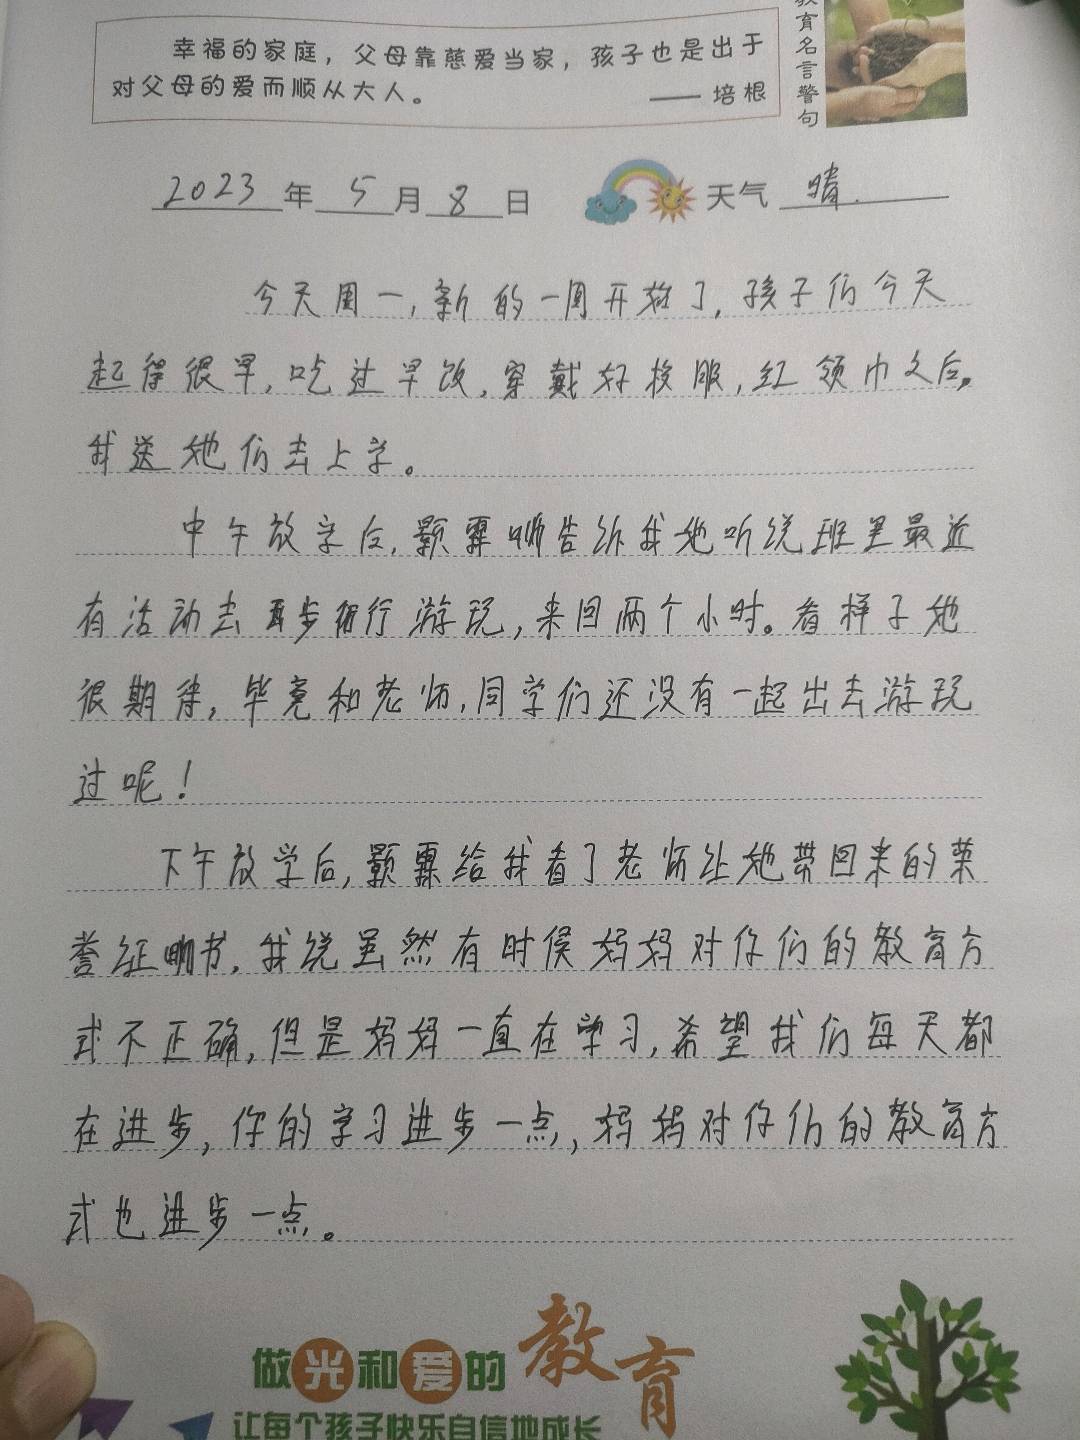 幸福的家庭，父母靠慈爱当家，孩子也是出于
对父母的爱而顺从大人。 —— 培根
教育名言警句
2023年 5月 8日 天气 晴.
今天周一,新的一周开始了,孩子们今天
起得很早,吃过早饭,穿戴好校服,红领巾之后,
我送她们去上学。
中午放学后,颢霖告诉我她听说班里最近
有活动去步行游玩,来回两个小时。看样子她
很期待,毕竟和老师,同学们还没有一起出去游玩
过呢!
下午放学后,颢霖给我看了老师让她带回来的荣
誉证书,我说虽然有时候妈妈对你们的教育方
式不正确,但是妈妈一直在学习,希望我们每天都
在进步,你的学习进步一点,妈妈对你们的教育方
式也进步一点。
做光和爱的教育
让每个孩子快乐自信地成长